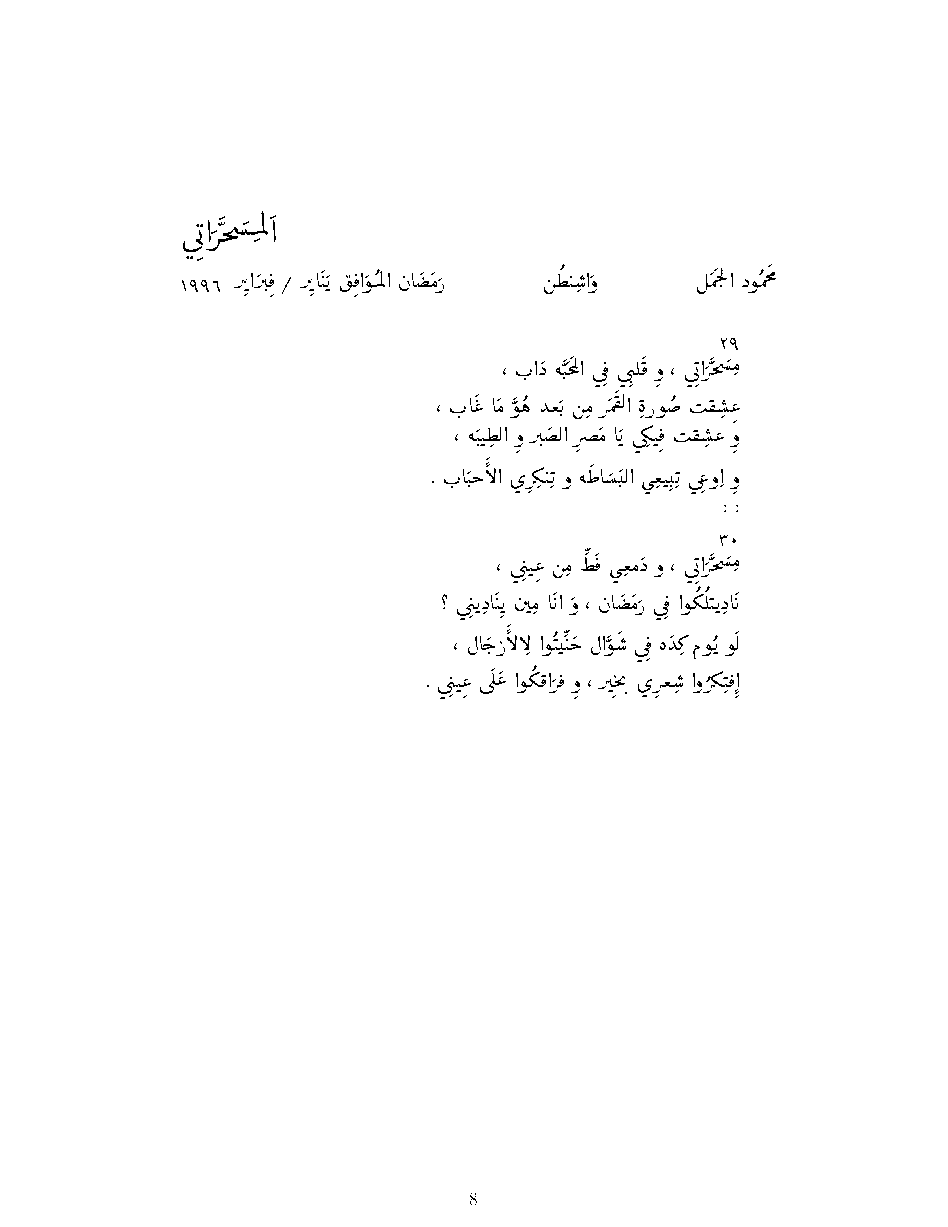 اَلمِسَحَّرَاتِي
مَحمُود الجَمَل وَاشِنطُن رَمَضَان المُـوَافِق يَنَايِر / فِبرَايِر ١٩٩٦
٢٩
مِسَحَّرَاتِي ، وِ قَلبِي فِي المَحَبَّه دَاب ،
عِشِقت صُورةِ القَمَر مِن بَعد هُوَّ مَا غَاب ،
وِ عشِقت فِيكِي يَا مَصرِ الصَبر وِ الطِيبَه ،
وِ اِوعِي تِبِيعِي البَسَاطَه و تِنكِرِي الأَحبَاب .
: :
٣٠
مِسَحَّرَاتِي ، و دَمعِي فَطِّ مِن عِينِي ،
نَادِيتلُكُوا فِي رَمَضَان ، وَ انَا مِين يِنَادِينِي ؟
لَو يُوم كِدَه فِي شَوَّال حَنِّيتُوا لِلأَرجَال ،
إِفتِكرُوا شِعرِي بخِير ، وِ فرَاقكُوا عَلَى عِينِي .
8